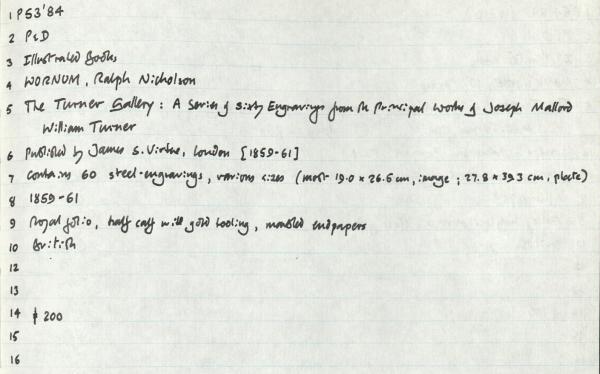 1 P53'84
2 P&D
3 Illustrated Books
4 WORNUM, Ralph Nicholson
5 The Turner Gallery: A Series of sixty Engravings from the Principal Works of Joseph Mallord
William Turner
6 Published by James S. Virtue, London [1859-61]
7 Contains 60 steel-engravings, various sizes (most 19.0 x 26.6 cm, image; 27.8 x 39.3 cm, plate)
8 1859-61
9 Royal folio, half calf with gold tooling, marbled endpapers
10 British
12
13
14 200
15
16